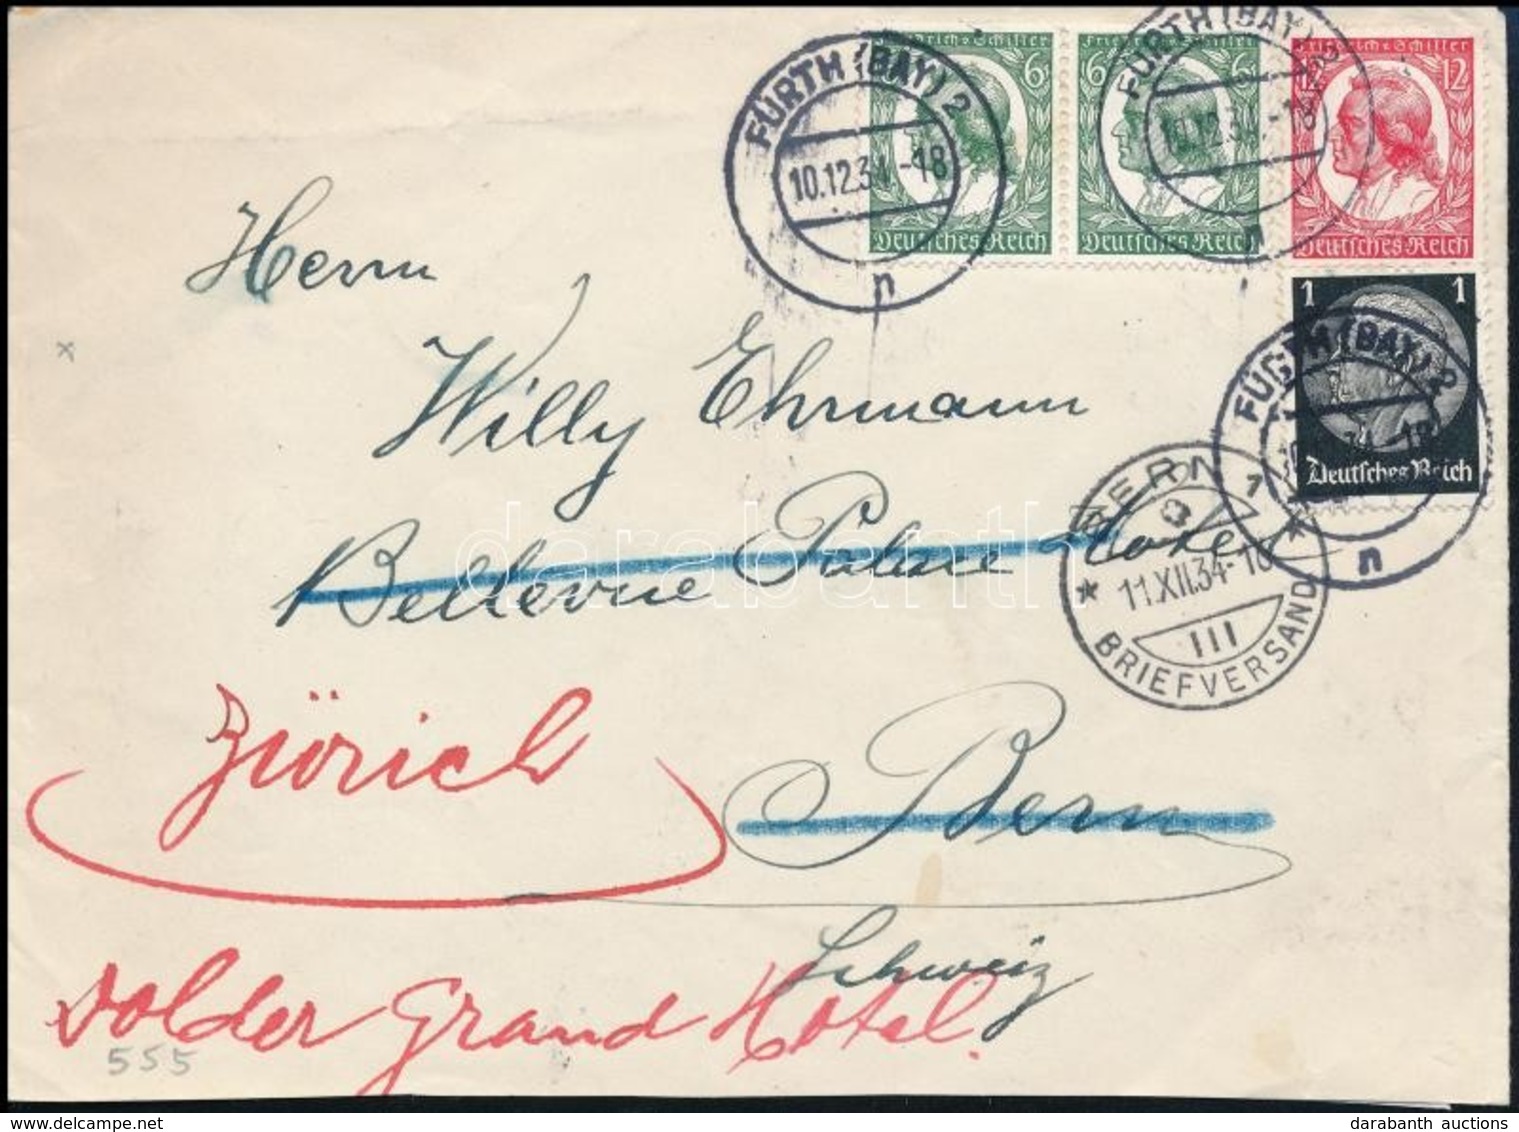 FÜRTH (BAY) 2
10.12.34.-18
n
Friedrich v Schiller
6
Deutsches Reich
Friedrich v Schiller
6 6
Deutsches Reich
FÜRTH (BAY) 2
10.12.34.-18
n
Friedrich v Schiller
12 12
Deutsches Reich
1 1
Deutsches Reich
FÜRTH (BAY) 2
-18
n
Herrn
Willy Ehrmann
Bellevue Palace Hotel
BERN 1
11.XII.34-18
III
BRIEFVERSAND
Zürich
Bern
Schweiz
Dolder Grand Hotel.
555
darabanth
delcampe.net
darabanth auctions